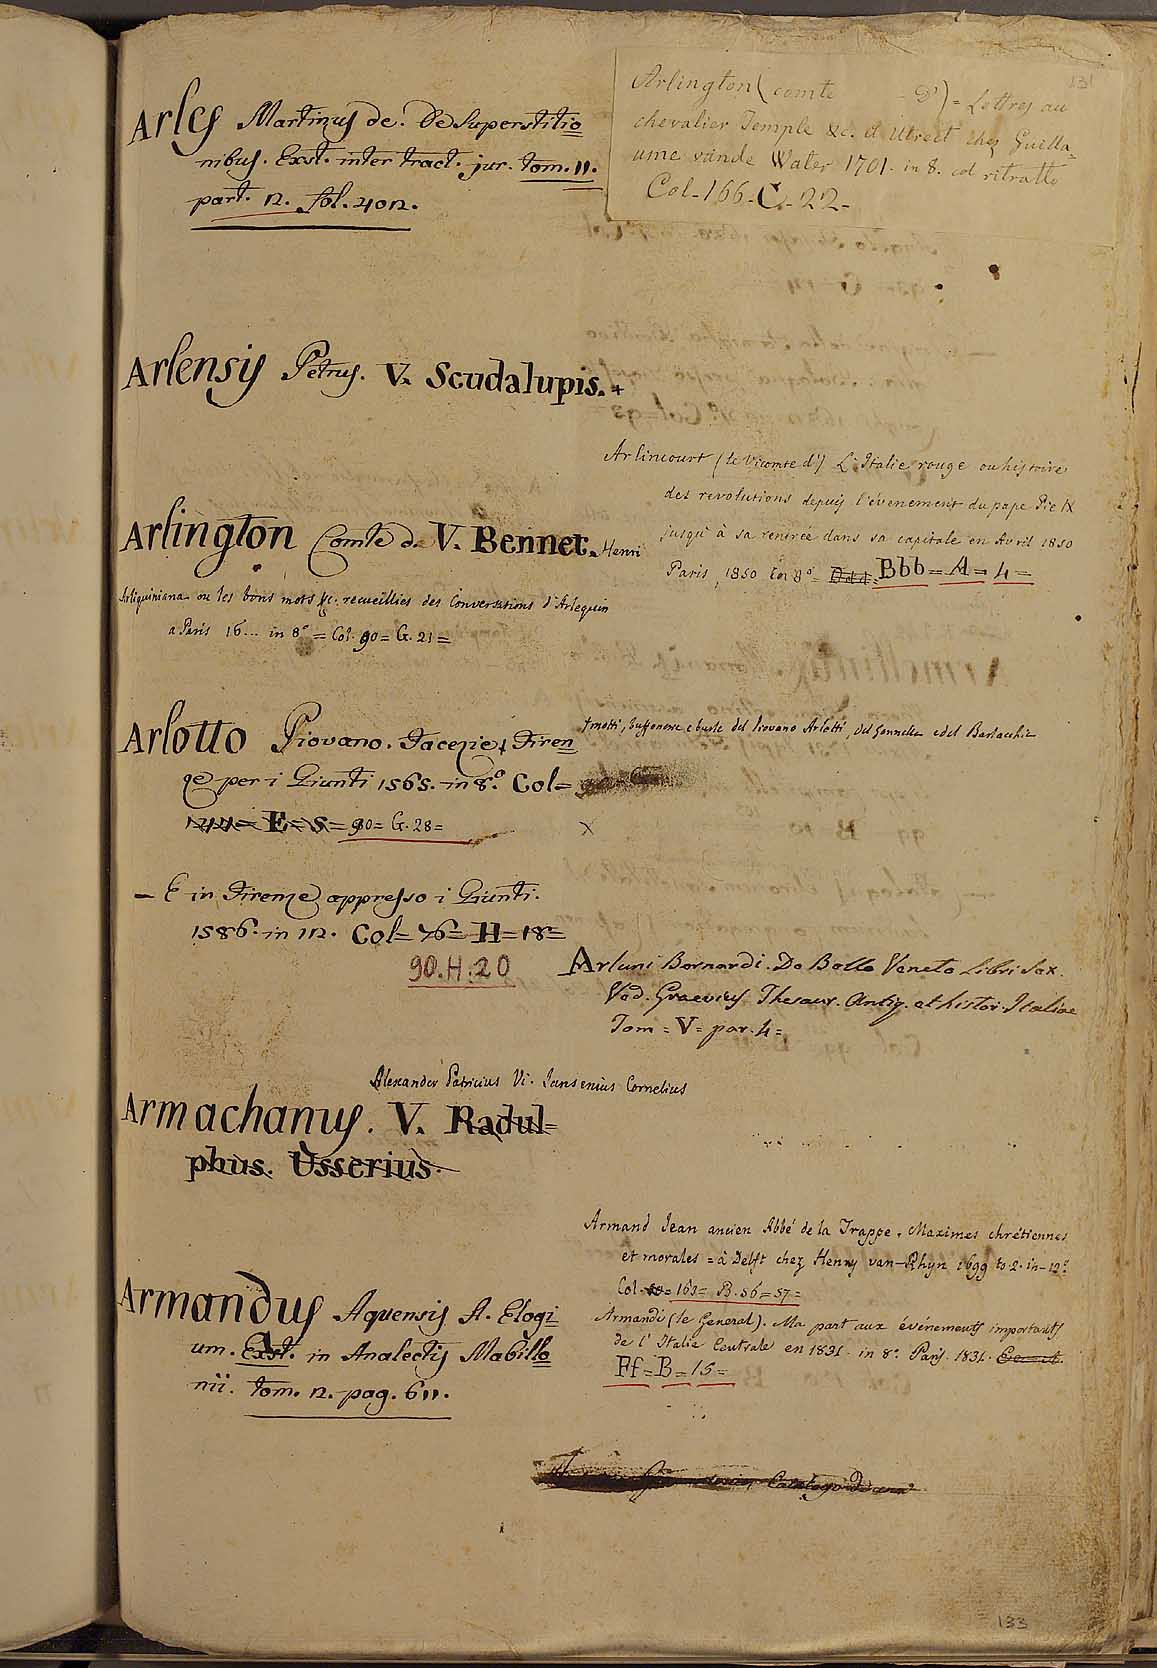 131
Arles Martinus de. De Superstitio
nibus. Exst. inter tract. jur. tom. 11.
part. 2. fol. 402.
Arlington (comte d') = Lettres au
chevalier Temple &c. a Utrect chez Guilla=
ume vande Water 1701. in 8. col ritratto
Col-166-C-22-
Arlensis Petrus. V. Scudalupis. +
Arlincourt (le Vicomte d') L'Italie rouge ou histoire
des revolutions depuis l'évenement du pape Pie IX
jusqu'à sa rentrée dans sa capitale en Avril 1850
Paris, 1850 in 8° = Ddd. Bbb = A = 4 =
Arlington Comte de V. Bennet. Henri
Arliquiniana ou les bons mots &c. recueillies des Conversations d'Arlequin
a Paris 16... in 8° = Col. 90 = G. 21 =
Arlotto Piovano. Facezie + Firen
+ motti, buffonerie e burle del Piovano Arlotti, del Gonnella e del Barlacchia
ze per i Giunti 1565. in 8.° Col =
144 = E = S = 90 = G. 28 =
X
- E in Firenze appresso i Giunti.
1586. in 12. Col = 76 = H = 18 =
90.H.20
Arluni Bernardi. De Bello Veneto Libri Sex.
Ved. Graevius Thesaur. Antiq. et histor. Italiae
Tom = V = par. 4 =
Alexander Patricius Vi. Jansenius Cornelius
Armachanus. V. Radul=
phus. Usserius.
Armand Jean ancien Abbé de la Trappe. Maximes chrétiennes
et morales = à Delft chez Henry van-Rhyn 1699 to 2. in-12°
Col. = 163 = B. 56 = 57 =
Armandi (le General). Ma part aux événements importants
de l'Italie Centrale en 1831. in 8° Paris. 1831.
Ff = B = 15 =
Armandus Aquensis A. Elogi
um. Exst. in Analectis Mabillo
nii. tom. 2. pag. 611.
133